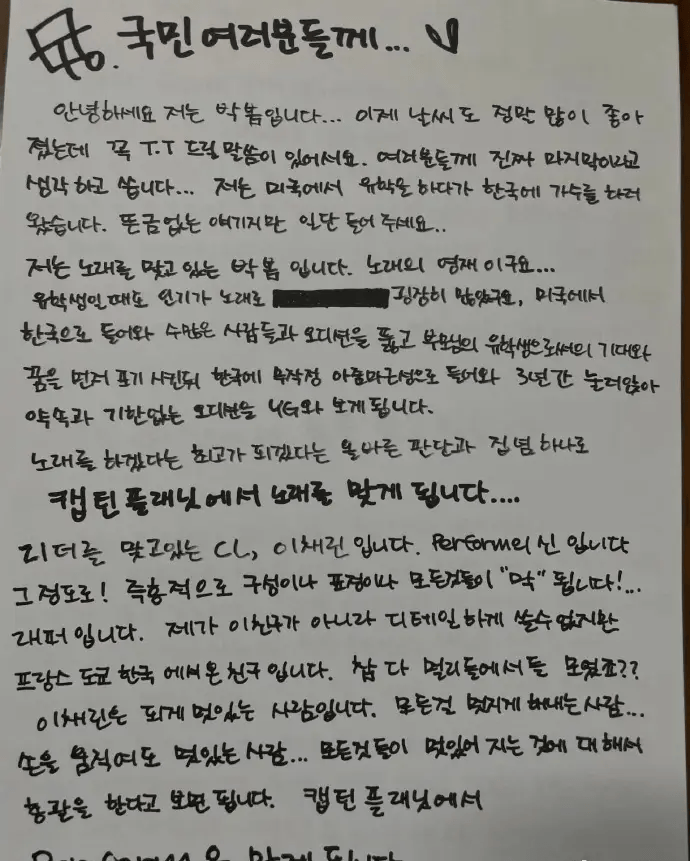 국민여러분들께... ♡
안녕하세요 저는 박봄입니다... 이제 날씨도 정말 많이 좋아
졌는데 꼭 T.T 드릴 말씀이 있어서요. 여러분들께 진짜 마지막이라고
생각하고 씁니다... 저는 미국에서 유학을 하다가 한국에 가수를 하러
왔습니다. 뜬금없는 얘기지만 일단 들어 주세요..
저는 노래를 맞고 있는 박봄 입니다. 노래의 영재이구요...
유학생일때도 인기가 노래로 굉장히 많았구요, 미국에서
한국으로 들어와 수많은 사람들과 오디션을 뚫고 부모님의 유학생으로써의 기대와
꿈을 먼저 포기 시킨뒤 한국에 무작정 아줌마근성으로 들어와 3년간 눌러앉아
약속과 기한없는 오디션을 YG와 보게됩니다.
노래를 하겠다는 최고가 되겠다는 올바른 판단과 집념 하나로
캡틴플래닛에서 노래를 맞게 됩니다....
리더를 맞고있는 CL, 이채린입니다. Perform의 신 입니다
그정도로! 즉흥적으로 구성이나 표정이나 모든것들이 "막" 됩니다!...
래퍼입니다. 제가 이친구가 아니라 디테일하게 쓸수없지만
프랑스 도쿄 한국 에서온친구입니다. 참 다 멀리들에서들 모였죠??
이채린은 되게 멋있는 사람입니다. 모든걸 멋지게 해내는사람...
손을 움직여도 멋있는 사람... 모든것들이 멋있어 지는 것에 대해서
총괄을 한다고 보면 됩니다. 캡틴 플래닛에서
맞게 됩니다